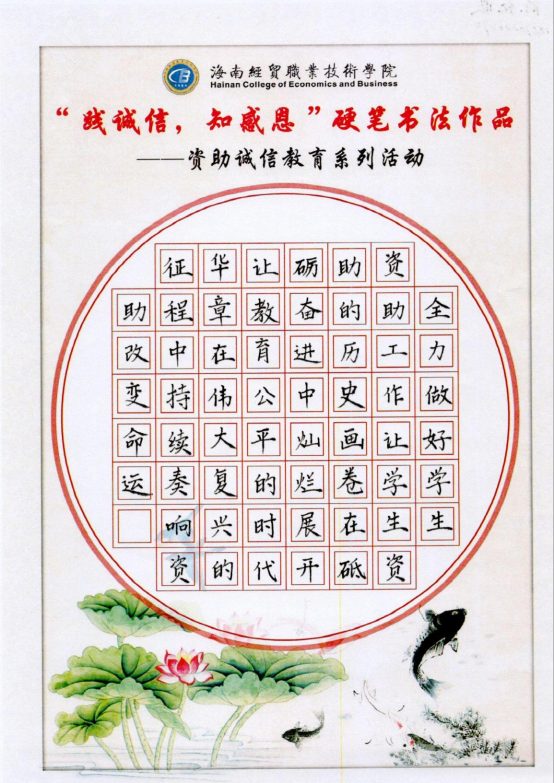 海南經貿職業技術學院
Hainan College of Economics and Business
“践诚信，知感恩”硬笔书法作品
——资助诚信教育系列活动
全力做好学生
资助工作让学生资
助的历史画卷在砥
砺奋进中灿烂展开
让教育公平的时代
华章在伟大复兴的
征程中持续奏响资
助改变命运